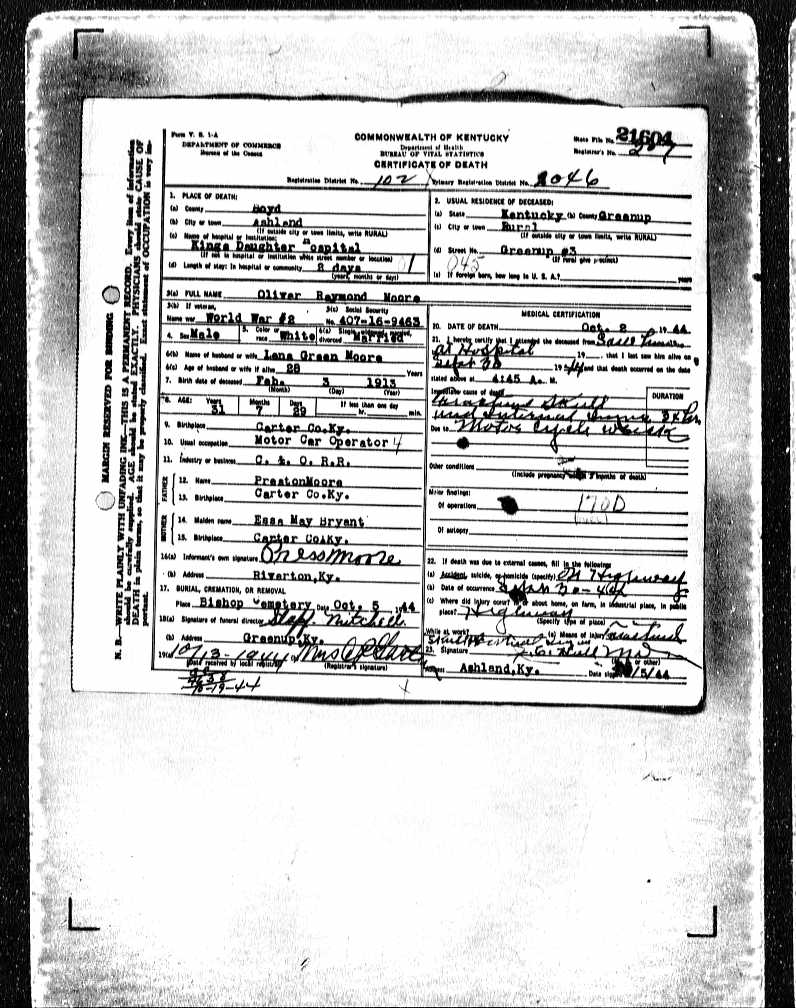 Form V. S. 1-A
DEPARTMENT OF COMMERCE
Bureau of the Census
COMMONWEALTH OF KENTUCKY
Department of Health
BUREAU OF VITAL STATISTICS
CERTIFICATE OF DEATH
State File No. 21604
Registrar's No. 287
Registration District No. 102 Primary Registration District No. 2046
MARGIN RESERVED FOR BINDING
N. B.—WRITE PLAINLY WITH UNFADING INK—THIS IS A PERMANENT RECORD. Every item of information
should be carefully supplied. AGE should be stated EXACTLY. PHYSICIANS should state CAUSE OF
DEATH in plain terms, so that it may be properly classified. Exact statement of OCCUPATION is very im-
portant.
1. PLACE OF DEATH:
(a) County Boyd
(b) City or town Ashland
(If outside city or town limits, write RURAL)
(c) Name of hospital or institution:
Kings Daughter ospital
(If not in hospital or institution write street number or location)
(d) Length of stay: In hospital or community 2 days
(years, months or days)
2. USUAL RESIDENCE OF DECEASED:
(a) State Kentucky (b) County Greenup
(c) City or town Rural
(If outside city or town limits, write RURAL)
(d) Street No. Greenup #3
(If rural give precinct)
045
(e) If foreign born, how long in U. S. A.? years
3(a) FULL NAME Oliver Raymond Moore
3(b) If veteran,
Name war World War #2
3(c) Social Security
No. 407-16-9463
4. Sex Male
5. Color or race White
6(a) Single, widowed, married, divorced Married
6(b) Name of husband or wife Lena Green Moore
6(c) Age of husband or wife if alive 28 Years
7. Birth date of deceased Feb. 3 1913
(Month) (Day) (Year)
8. AGE: Years 31 Months 7 Days 29 If less than one day hr. min.
9. Birthplace Carter Co.Ky.
10. Usual occupation Motor Car Operator 4
11. Industry or business C. & O. R.R.
FATHER
12. Name PrestonMoore
13. Birthplace Carter Co.Ky.
MOTHER
14. Maiden name Essa May Bryant
15. Birthplace Carter Co.Ky.
16(a) Informant's own signature Press Moore
(b) Address Riverton,Ky.
17. BURIAL, CREMATION, OR REMOVAL
Place Bishop emetery Date Oct. 5 1944
18(a) Signature of funeral director Mitchell
(b) Address Greenup,Ky.
19(a) 10/13-1944 Mrs
(Date received by local registrar) (Registrar's signature)
10-19-44
MEDICAL CERTIFICATION
20. DATE OF DEATH Oct. 2 , 1944
21. I hereby certify that I attended the deceased from
at Hospital 19 , that I last saw him alive on
Sept 30 1944 and that death occurred on the date
stated above at 4:45 A. M.
Immediate cause of death
DURATION
Fractured Skull
and internal
Due to Motor Cycle wreck
Other conditions
(Include pregnancy within 3 months of death)
Major findings:
Of operations
170D
Of autopsy
22. If death was due to external causes, fill in the following:
(a) Accident, suicide, or homicide (specify) On Highway
(b) Date of occurrence Sept 30-44
(c) Where did injury occur? In or about home, on farm, in industrial place, in public
place? Highway
(Specify type of place)
While at work? (e) Means of injury Fractured
Skull
23. Signature (M.D. or other)
Address Ashland,Ky. Date signed /5/44